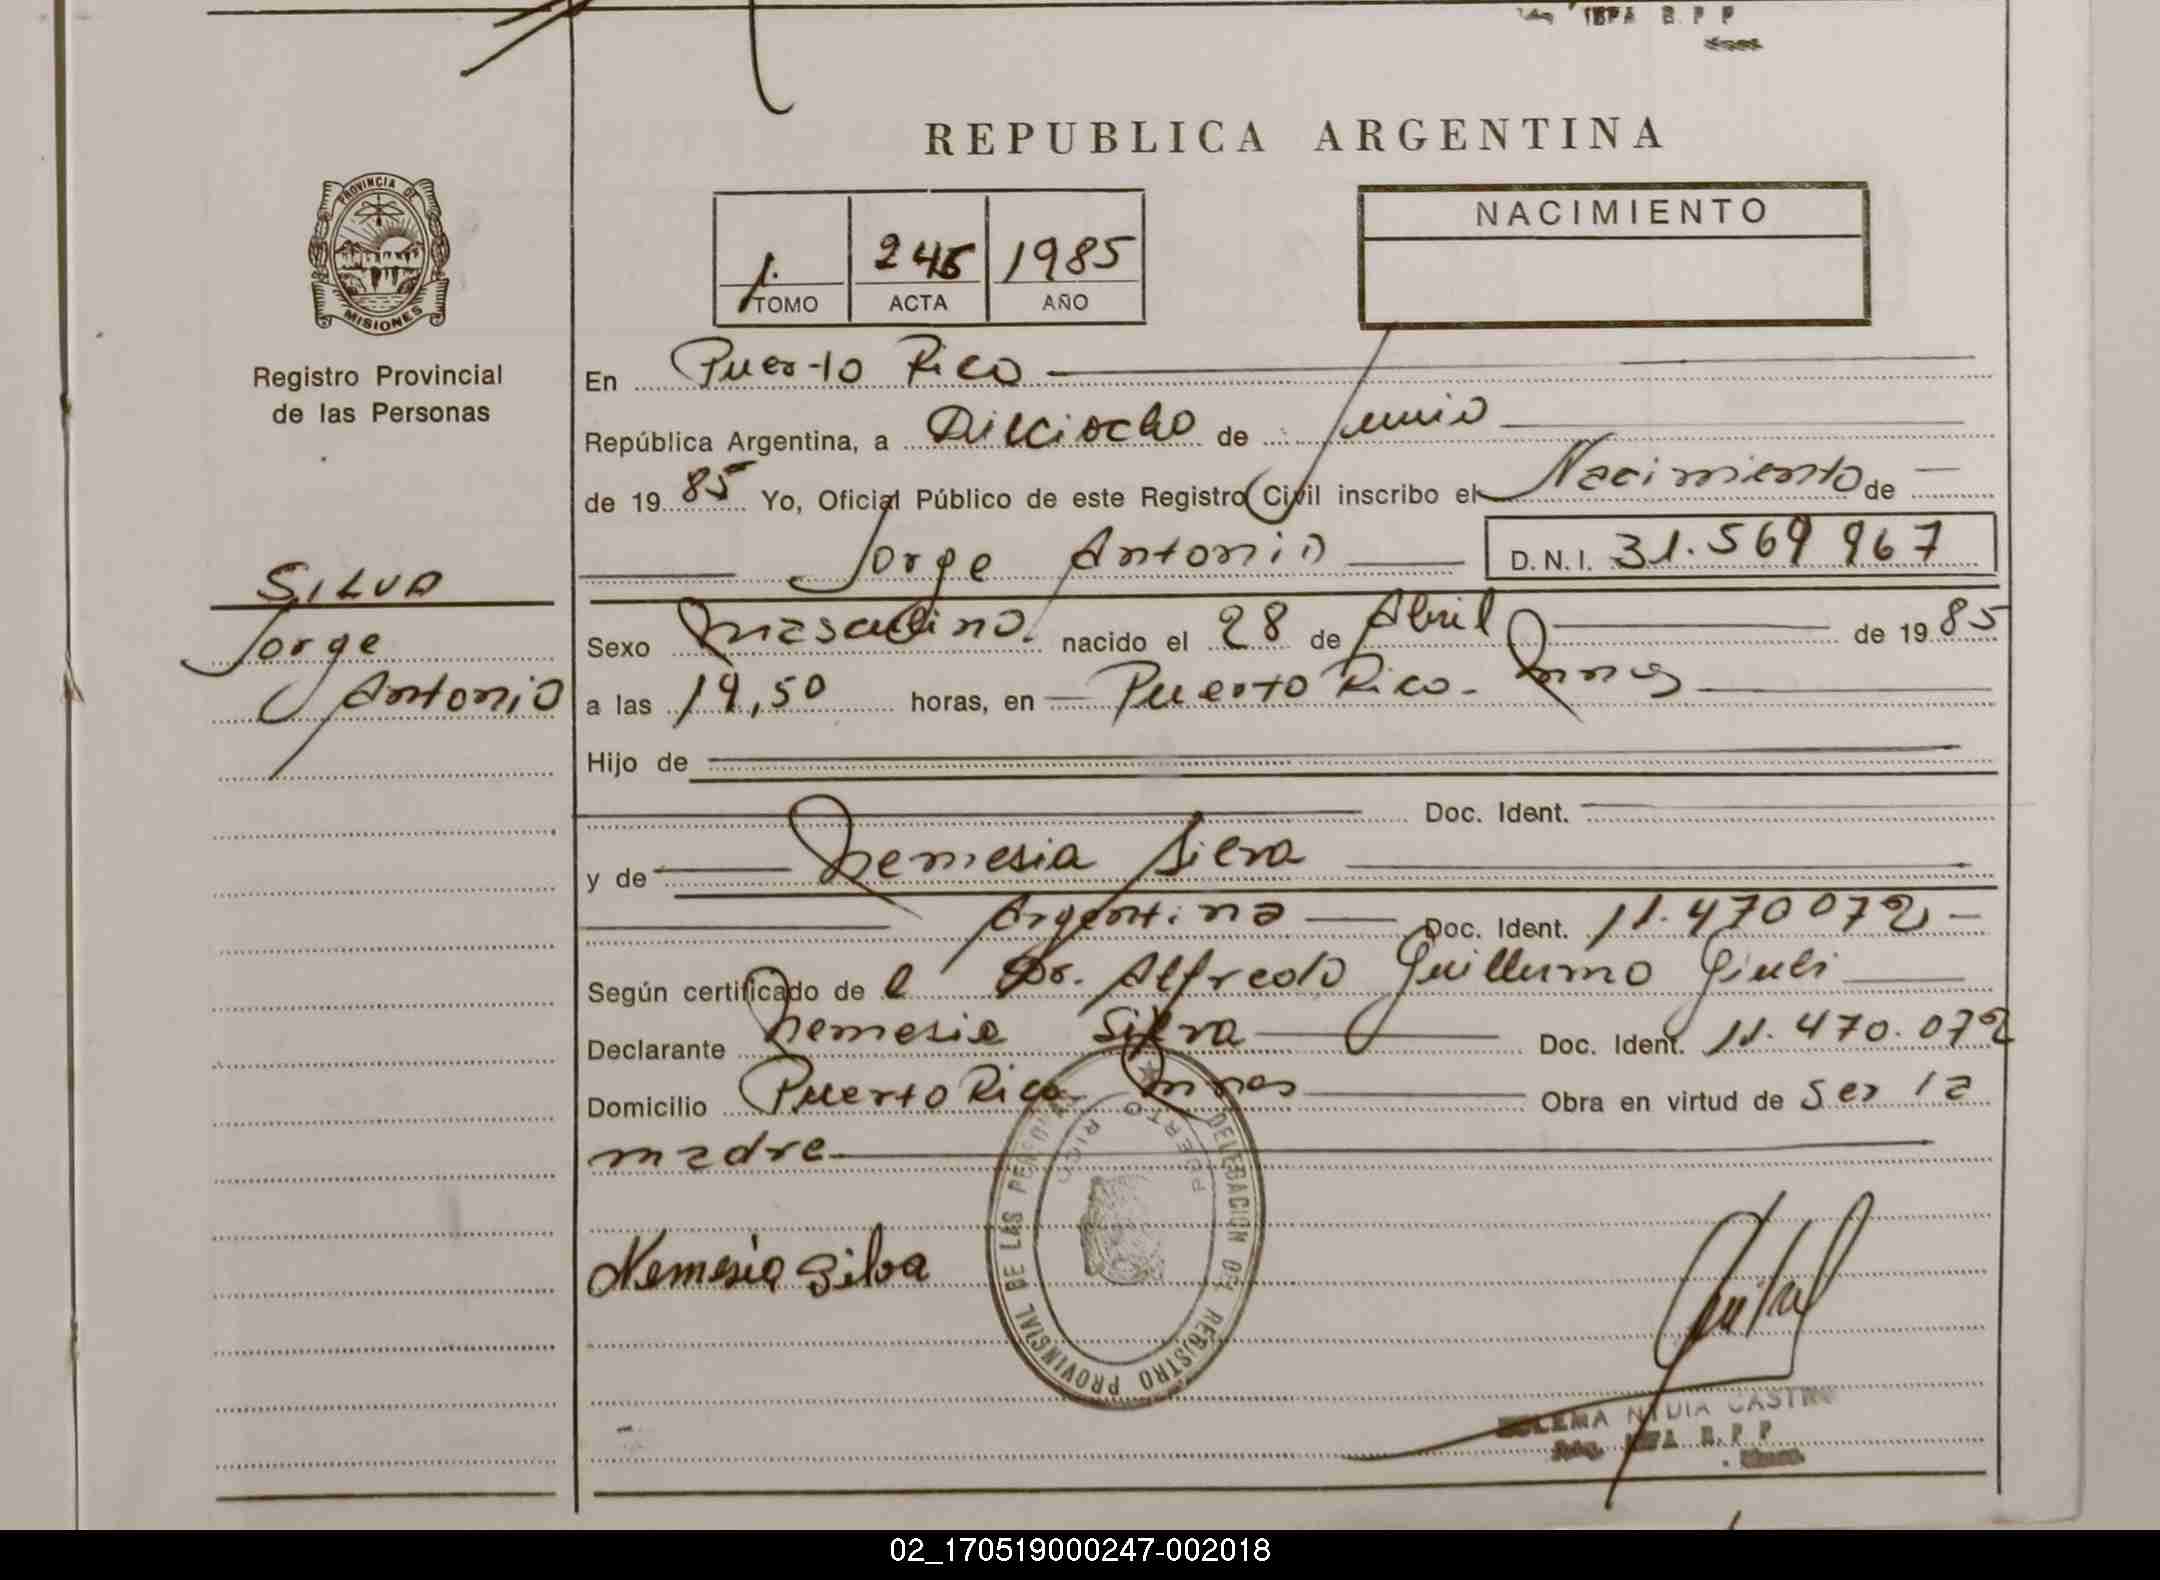 REPUBLICA ARGENTINA
PROVINCIA DE
MISIONES
Registro Provincial
de las Personas
1. 245 1985
TOMO ACTA AÑO
NACIMIENTO
En Puerto Rico
República Argentina, a Dieciocho de Junio
de 19 85 Yo, Oficial Público de este Registro Civil inscribo el Nacimiento de
Jorge Antonio D.N.I. 31.569 967
SILVA
Jorge
Antonio
Sexo Masculino. nacido el 28 de Abril de 19 85
a las 19,50 horas, en Puerto Rico. Mnes
Hijo de
Doc. Ident.
y de Nemesia Silva
Argentina Doc. Ident. 11.470072
Según certificado de l Dr. Alfredo Guillermo Giuli
Declarante Nemesia Silva Doc. Ident. 11.470.072
Domicilio Puerto Rico. Mnes Obra en virtud de Ser la
madre
DELEGACION DEL REGISTRO PROVINSIAL DE LAS PERSONAS
PUERTO RICO
Nemesia Silva
NIDIA CASTRO
02_170519000247-002018